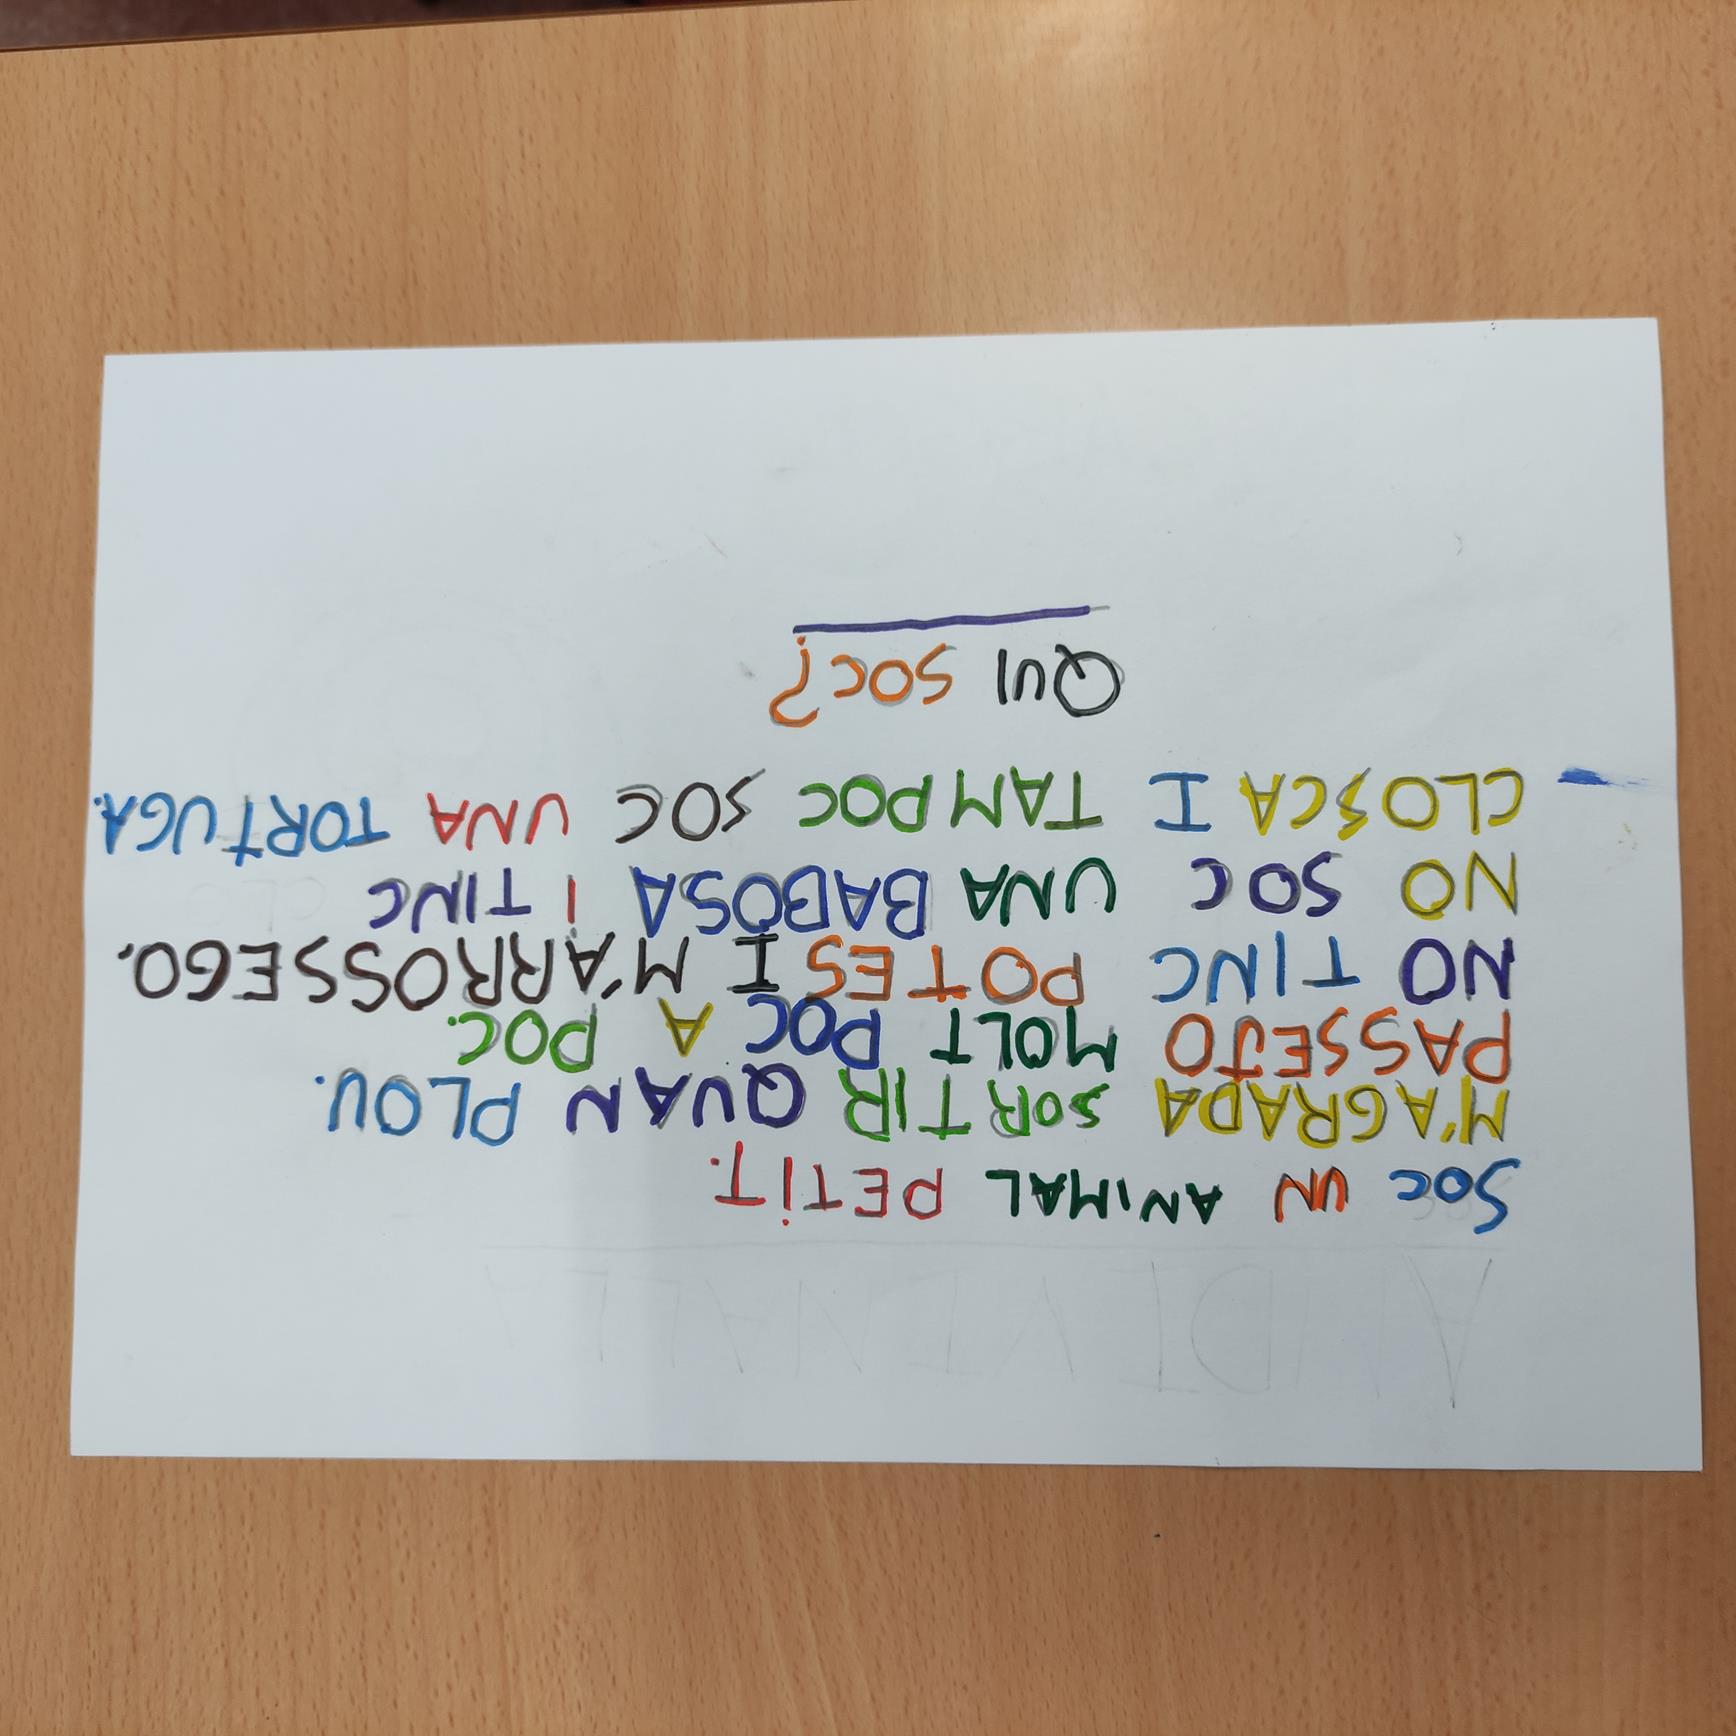 SOC UN ANIMAL PETIT.
M'AGRADA SORTIR QUAN PLOU.
PASSEJO MOLT POC A POC.
NO TINC POTES I M'ARROSSEGO.
NO SOC UNA BABOSA I TINC
CLOSCA I TAMPOC SOC UNA TORTUGA.
QUI SOC?